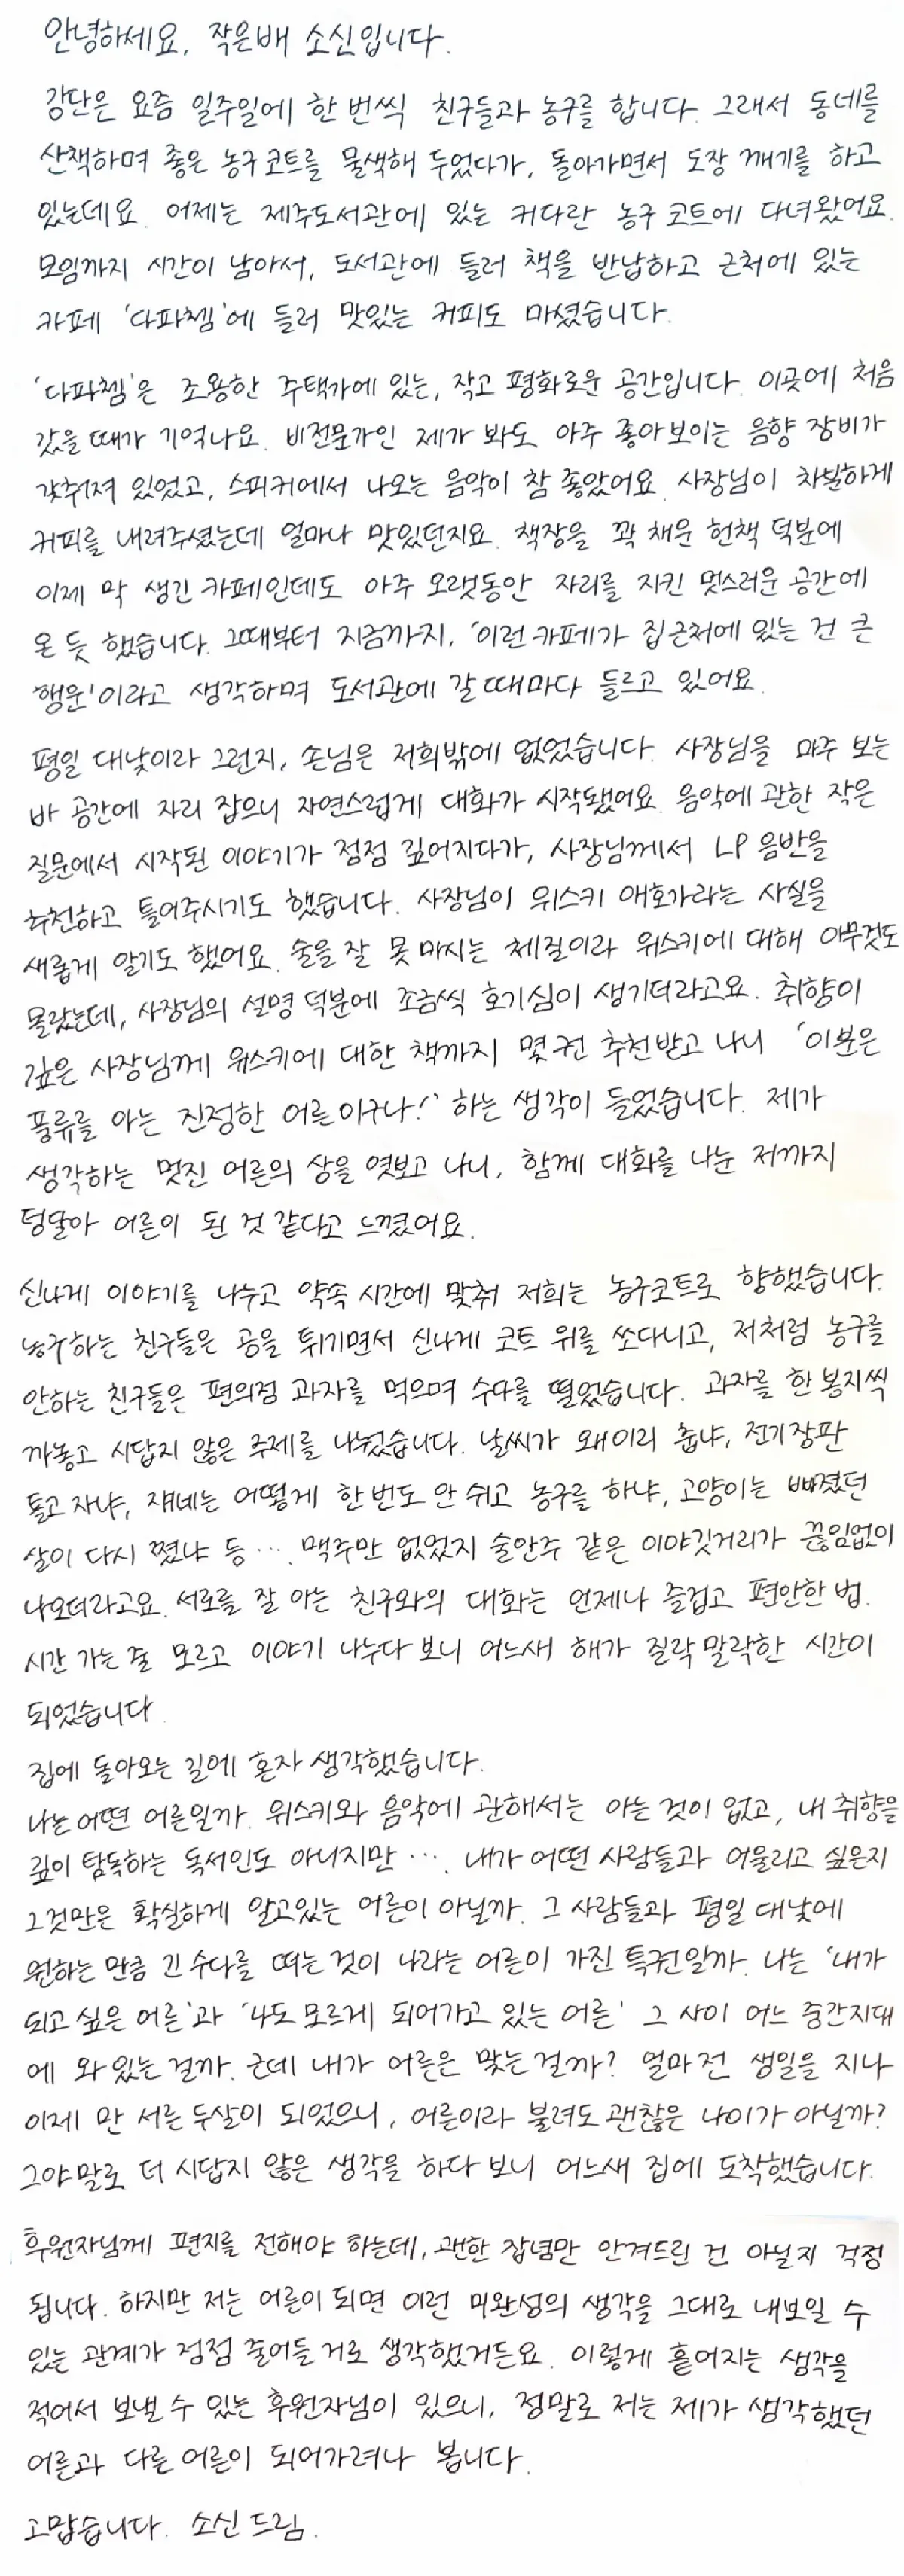 안녕하세요, 작은배 소신입니다.
강단은 요즘 일주일에 한 번씩 친구들과 농구를 합니다. 그래서 동네를
산책하며 좋은 농구 코트를 물색해 두었다가, 돌아가면서 도장 깨기를 하고
있는데요. 어제는 제주도서관에 있는 커다란 농구 코트에 다녀왔어요.
모임까지 시간이 남아서, 도서관에 들러 책을 반납하고 근처에 있는
카페 '다파쳄'에 들러 맛있는 커피도 마셨습니다.
'다파쳄'은 조용한 주택가에 있는, 작고 평화로운 공간입니다. 이곳에 처음
갔을 때가 기억나요. 비전문가인 제가 봐도 아주 좋아보이는 음향 장비가
갖춰져 있었고, 스피커에서 나오는 음악이 참 좋았어요. 사장님이 차분하게
커피를 내려주셨는데 얼마나 맛있던지요. 책장을 꽉 채운 헌책 덕분에
이제 막 생긴 카페인데도 아주 오랫동안 자리를 지킨 멋스러운 공간에
온 듯 했습니다. 그때부터 지금까지, '이런 카페가 집근처에 있는 건 큰
행운'이라고 생각하며 도서관에 갈 때마다 들르고 있어요.
평일 대낮이라 그런지, 손님은 저희밖에 없었습니다. 사장님을 마주 보는
바 공간에 자리 잡으니 자연스럽게 대화가 시작됐어요. 음악에 관한 작은
질문에서 시작된 이야기가 점점 깊어지다가, 사장님께서 LP 음반을
추천하고 틀어주시기도 했습니다. 사장님이 위스키 애호가라는 사실을
새롭게 알기도 했어요. 술을 잘 못 마시는 체질이라 위스키에 대해 아무것도
몰랐는데, 사장님의 설명 덕분에 조금씩 호기심이 생기더라고요. 취향이
깊은 사장님께 위스키에 대한 책까지 몇 권 추천받고 나니 '이분은
풍류를 아는 진정한 어른이구나!' 하는 생각이 들었습니다. 제가
생각하는 멋진 어른의 상을 엿보고 나니, 함께 대화를 나눈 저까지
덩달아 어른이 된 것 같다고 느꼈어요.
신나게 이야기를 나누고 약속 시간에 맞춰 저희는 농구코트로 향했습니다.
농구하는 친구들은 공을 튀기면서 신나게 코트 위를 쏘다니고, 저처럼 농구를
안하는 친구들은 편의점 과자를 먹으며 수다를 떨었습니다. 과자를 한 봉지씩
까놓고 시답지 않은 주제를 나눴습니다. 날씨가 왜이리 춥냐, 전기장판
틀고 자냐, 쟤네는 어떻게 한 번도 안 쉬고 농구를 하냐, 고양이는 빠졌던
살이 다시 쪘냐 등 … . 맥주만 없었지 술안주 같은 이야깃거리가 끊임없이
나오더라고요. 서로를 잘 아는 친구와의 대화는 언제나 즐겁고 편안한 법.
시간 가는 줄 모르고 이야기 나누다 보니 어느새 해가 질락 말락한 시간이
되었습니다.
집에 돌아오는 길에 혼자 생각했습니다.
나는 어떤 어른일까. 위스키와 음악에 관해서는 아는 것이 없고, 내 취향을
깊이 탐독하는 독서인도 아니지만 … . 내가 어떤 사람들과 어울리고 싶은지
그것만은 확실하게 알고있는 어른이 아닐까. 그 사람들과 평일 대낮에
원하는 만큼 긴 수다를 떠는 것이 나라는 어른이 가진 특권일까. 나는 '내가
되고 싶은 어른'과 '나도 모르게 되어가고 있는 어른' 그 사이 어느 중간지대
에 와 있는 걸까. 근데 내가 어른은 맞는 걸까? 얼마 전 생일을 지나
이제 만 서른 두살이 되었으니, 어른이라 불려도 괜찮은 나이가 아닐까?
그야말로 더 시답지 않은 생각을 하다 보니 어느새 집에 도착했습니다.
후원자님께 편지를 전해야 하는데, 괜한 잡념만 안겨드린 건 아닐지 걱정
됩니다. 하지만 저는 어른이 되면 이런 미완성의 생각을 그대로 내보일 수
있는 관계가 점점 줄어들 거로 생각했거든요. 이렇게 흩어지는 생각을
적어서 보낼 수 있는 후원자님이 있으니, 정말로 저는 제가 생각했던
어른과 다른 어른이 되어가려나 봅니다.
고맙습니다. 소신 드림.